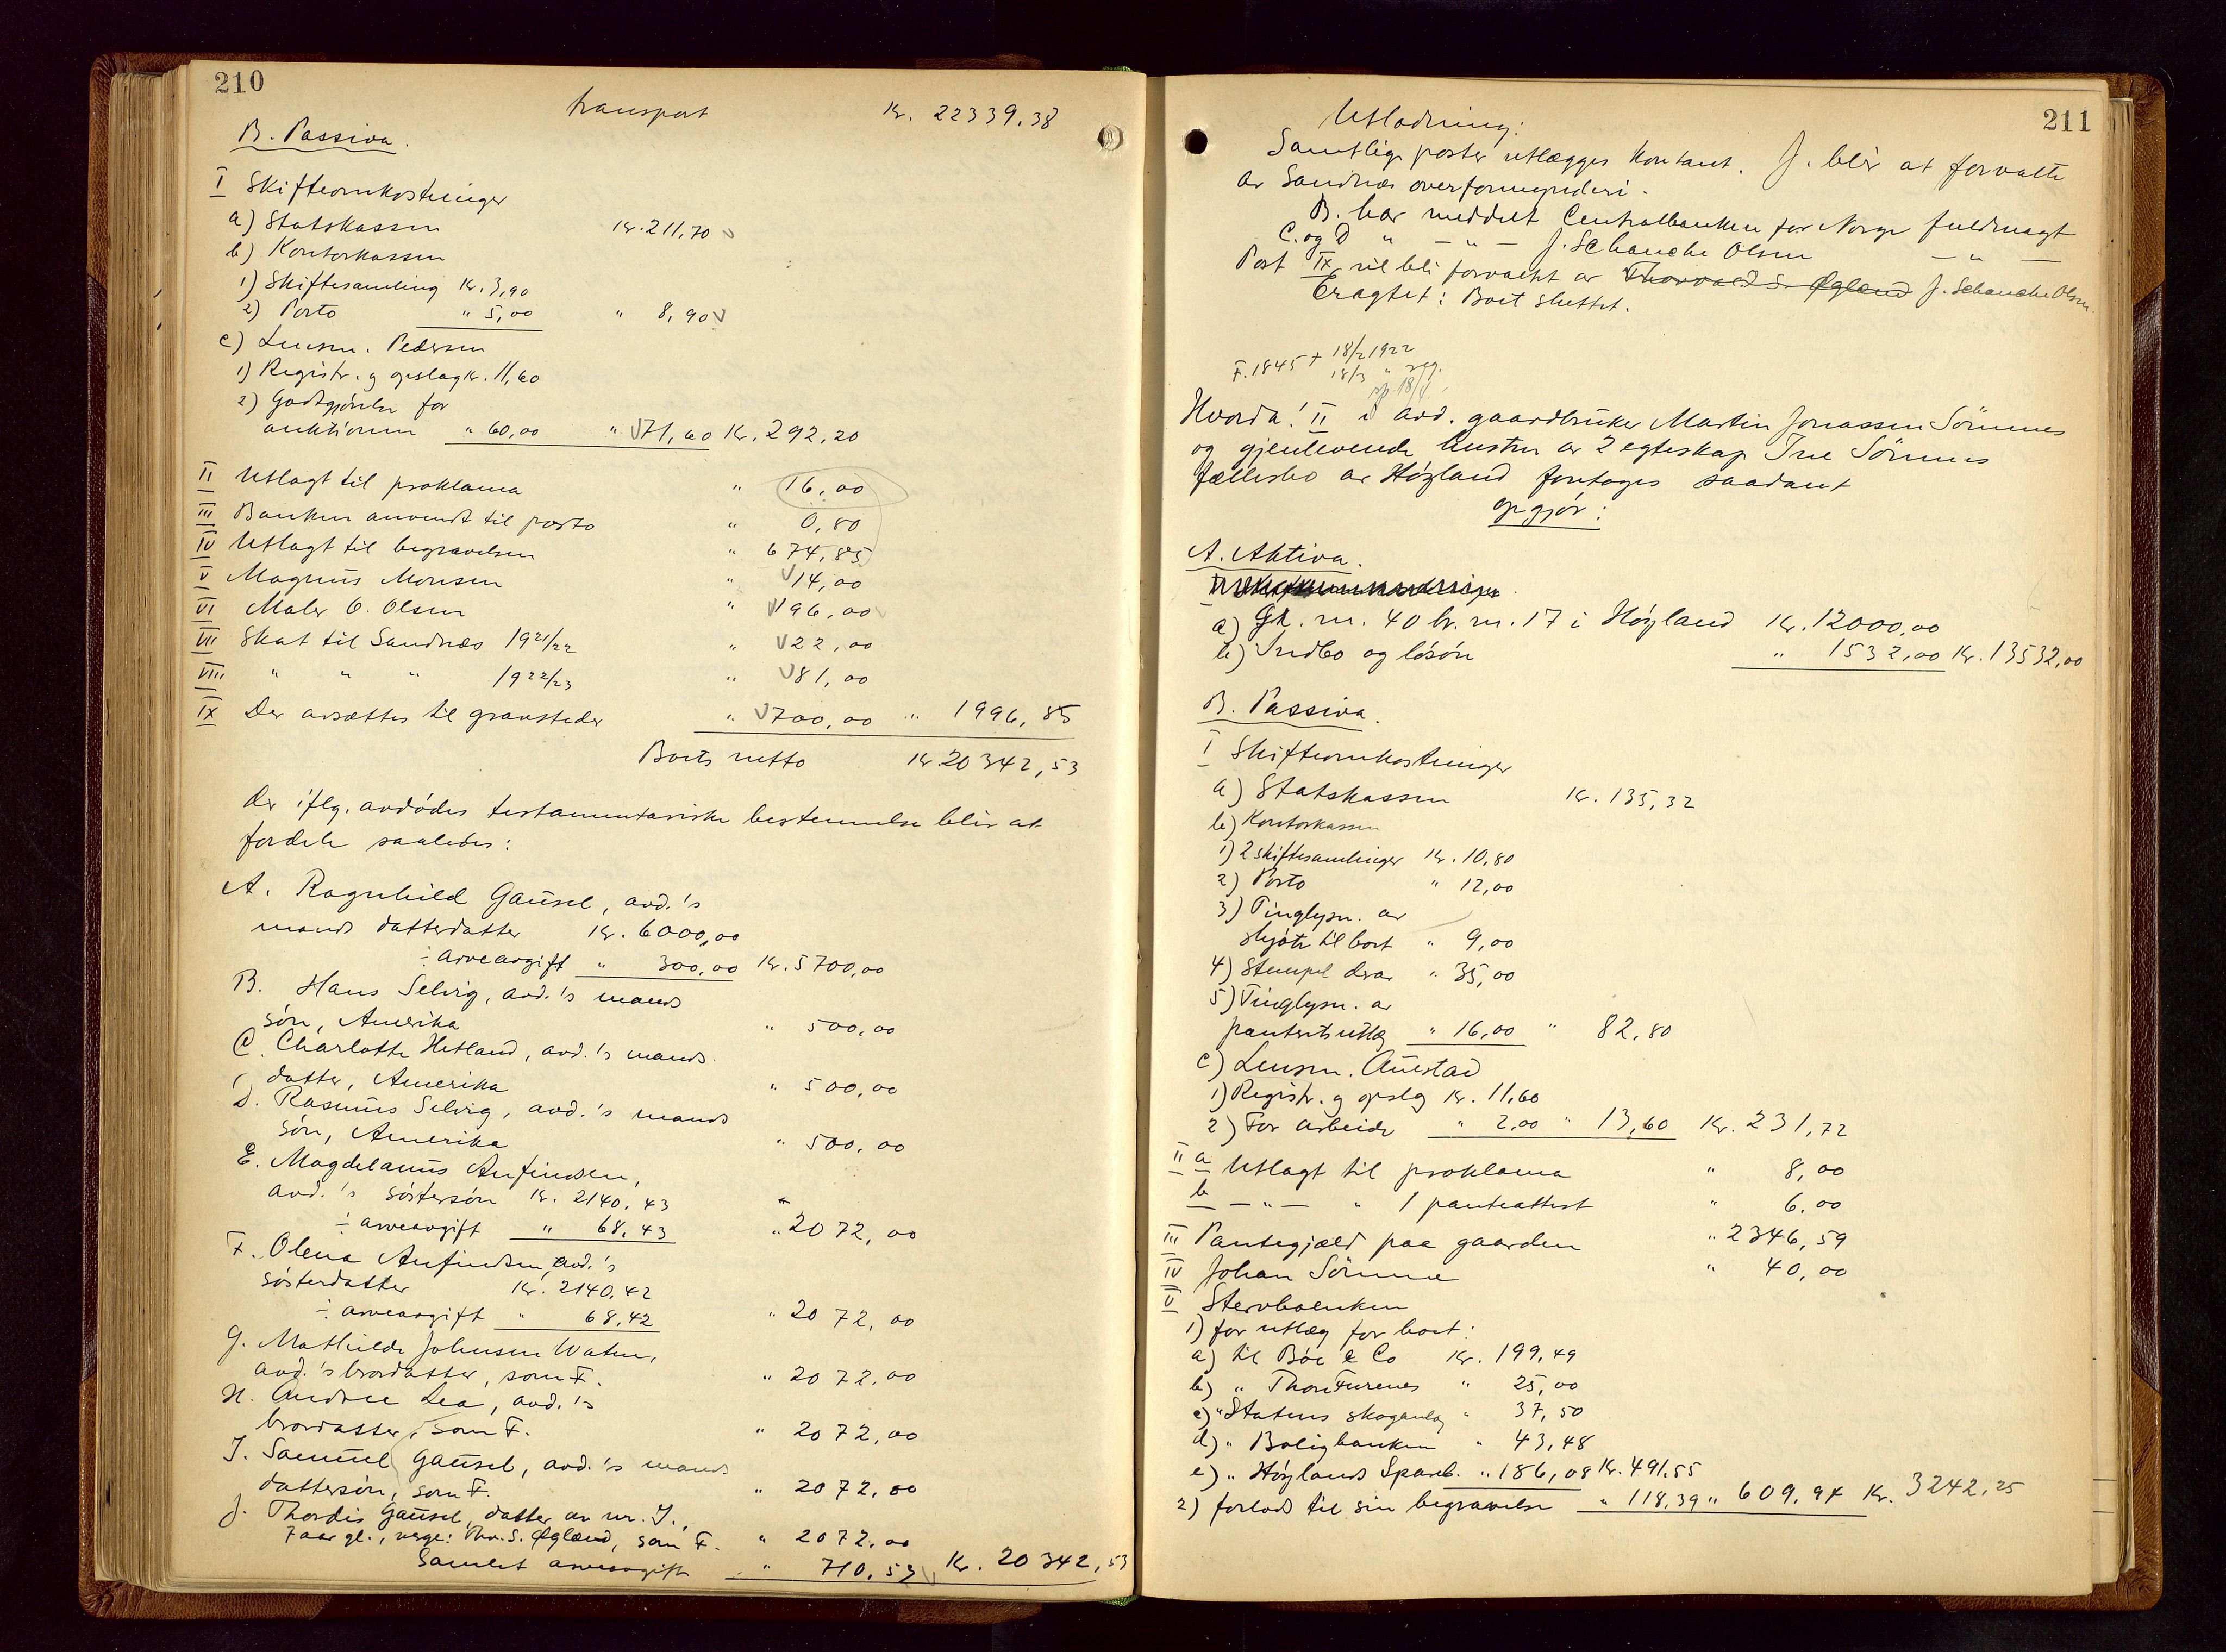 210
transport Kr. 22339,38
B. Passiva.
I Skifteomkostninger
a) Statskassen Kr. 211,70
b) Kontorkassen
1) Skiftesamling Kr. 3,90
2) Porto " 5,00 " 8,90
c) Lensm. Pedersen
1) Registr. og opslag Kr. 11,60
2) Godtgjörelse for
auktionen " 60,00 " 71,60 Kr. 292,20
II Utlagt til proklama " 16,00
III Banken anvendt til porto " 0,80
IV Utlagt til begravelsen " 674,85
V Magnus Monsen " 14,00
VI Maler O. Olsen " 196,00
VII Skat til Sandnæs 1921/22 " 22,00
VIII " " " 1922/23 " 81,00
IX Der avsættes til gravsteder " 700,00 " 1996,85
Boets netto Kr. 20342,53
der iflg. avdödes testamentariske bestemmelse blir at
fordele saaledes:
A. Ragnhild Gausel, avd.'s
mands datterdatter Kr. 6000,00
÷ arveavgift " 300,00 Kr. 5700,00
B. Hans Selvig, avd.'s mands
sön, Amerika " 500,00
C. Charlotte Hetland, avd.'s mands
datter, Amerika " 500,00
D. Rasmus Selvig, avd.'s mands
sön, Amerika " 500,00
E. Magdelanus Anfindsen,
avd.'s söstersön Kr. 2140,43
÷ arveavgift " 68,43 " 2072,00
F. Olena Anfindsen, avd.'s
sösterdatter Kr. 2140,42
÷ arveavgift " 68,42 " 2072,00
G. Mathilde Johnsen Waten,
avd.'s brordatter, som F. " 2072,00
H. Andree Lea, avd.'s
brordatter, som F. " 2072,00
I. Samuel Gausel, avd.'s mands
dattersön, som F. " 2072,00
J. Thordis Gausel, datter av nr. I.,
7 aar gl., verge: Thv. S. Øglænd, som F. " 2072,00
Samlet arveavgift " 710,53 Kr. 20342,53
211
Utlodning:
Samtlige poster utlægges kontant. J. blir at forvalte
av Sandnæs overformynderi.
B. har meddelt Centralbanken for Norge fuldmagt
C. og D " — " — J. Schanche Olsen — " —
Post IX vil bli forvaltet av Thorvald S. Øglænd J. Schanche Olsen.
Eragtet: Boet sluttet.
F. 1845 + 18/2 1922
18/3 " reg.
Hvorda! II i avd. gaardbruker Martin Jonassen Sömmes
og gjenlevende hustru av 2 egteskap Ine Sömmes
fællesbo av Høyland foretages saadant
opgjör:
A. Aktiva.
a) Gk. nr. 40 br. nr. 17 i Høyland Kr. 12000,00
b) Indbo og lösöre " 1532,00 Kr. 13532,00
B. Passiva.
I Skifteomkostninger
a) Statskassen Kr. 135,32
b) Kontorkassen
1) 2 skiftesamlinger Kr. 10,80
2) Porto " 12,00
3) Tinglysn. av
skjöte til boet " 9,00
4) Stempel derav " 35,00
5) Tinglysn. av
panteretsutlæg " 16,00 " 82,80
c) Lensm. Auestad
1) Registr. og opslag Kr. 11,60
2) For arbeide " 2,00 " 13,60 Kr. 231,72
II a Utlagt til proklama " 8,00
b — " — " 1 panteattest " 6,00
III Pantegjæld paa gaarden " 2346,59
IV Johan Sömme " 40,00
V Stervboenken
1) for utlæg for boet:
a) til Böe & Co Kr. 199,49
b) " Thon Furenes " 25,00
c) " Statens skoganlæg " 37,50
d) " Boligbanken " 43,48
e) " Høylands Spareb. " 186,08 Kr. 491,55
2) forlods til sin begravelse " 118,39 " 609,94 Kr. 3242,25